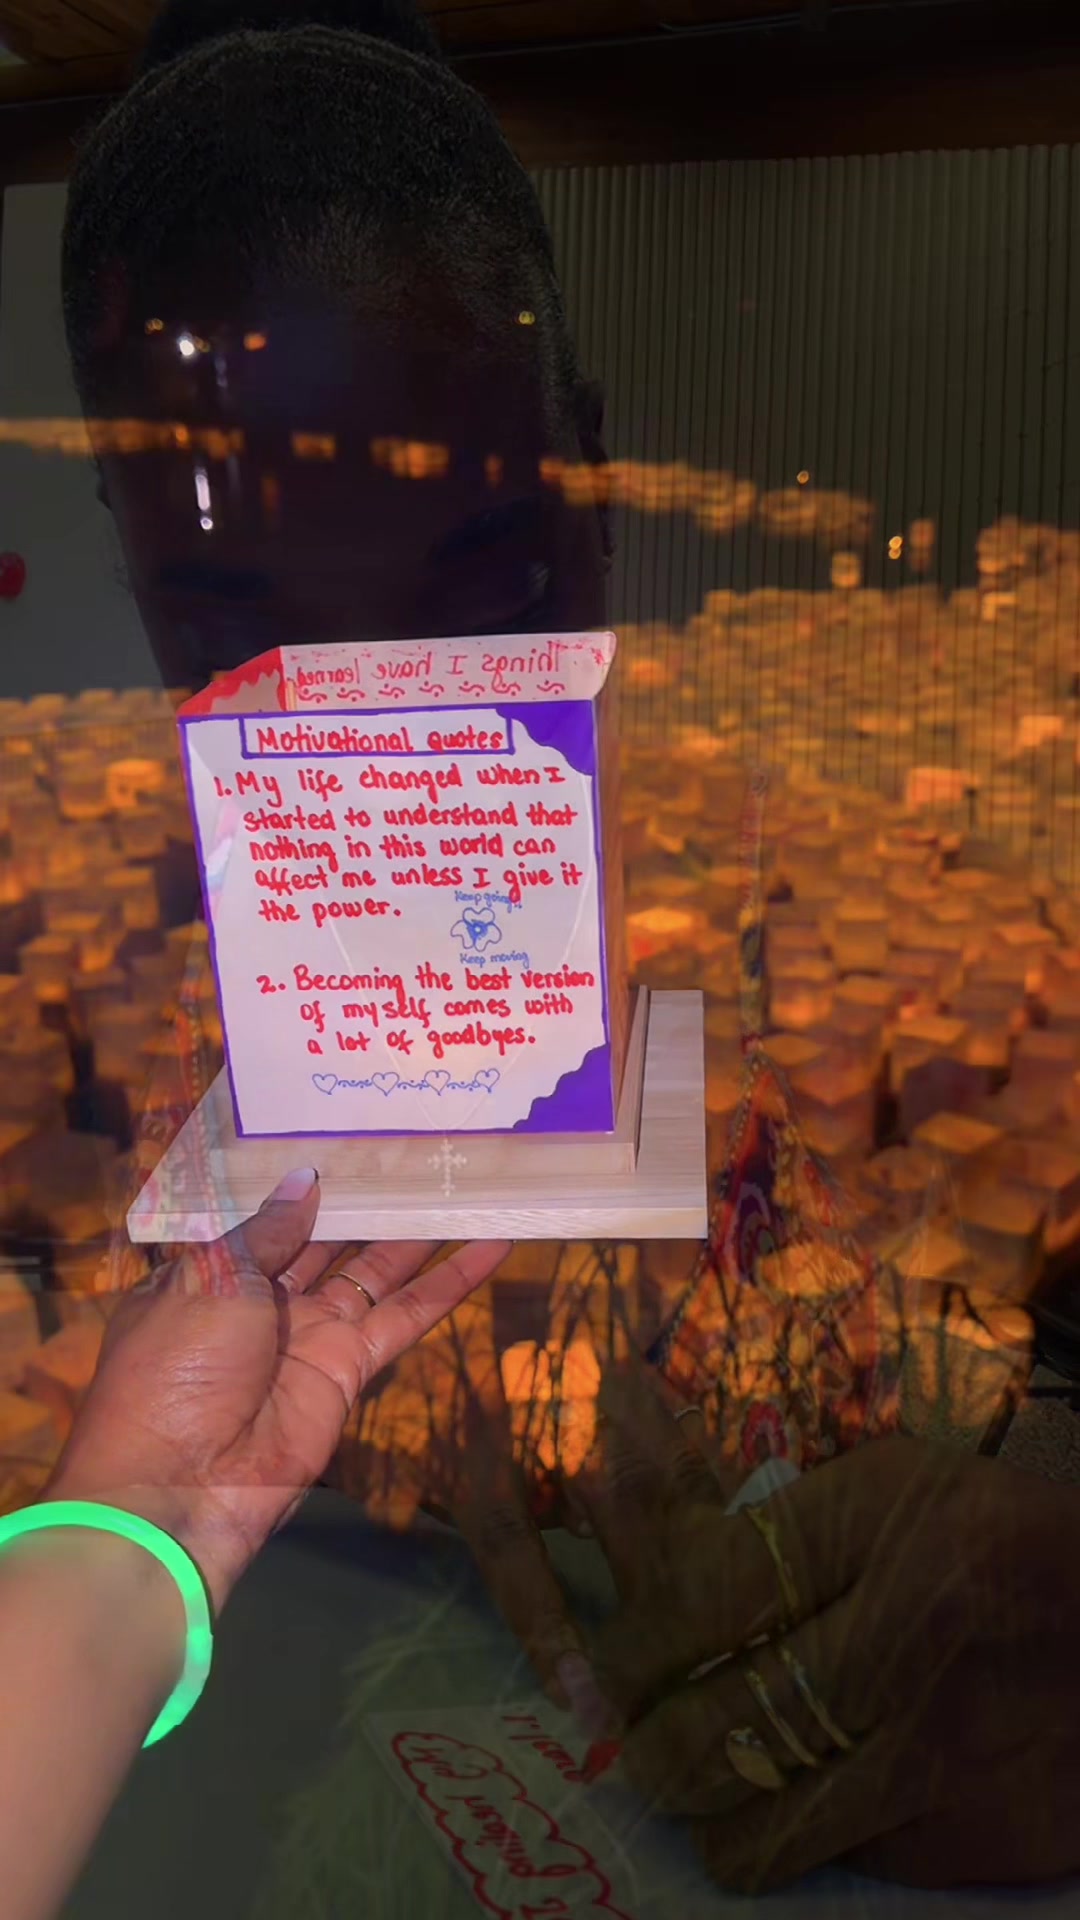 Things I have learned
Motivational quotes
1. My life changed when I
started to understand that
nothing in this world can
affect me unless I give it
the power.
Keep going!!
Keep moving
2. Becoming the best version
of my self comes with
a lot of goodbyes.